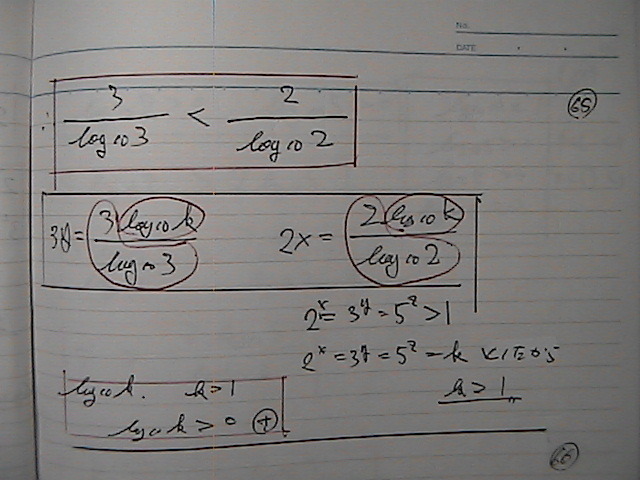 No.
DATE
65
∴ 3/log₁₀3 < 2/log₁₀2
3y = 3 log₁₀k / log₁₀3   2x = 2 log₁₀k / log₁₀2
2ˣ = 3ʸ = 5ᶻ > 1
2ˣ = 3ʸ = 5ᶻ = k
k > 1
log₁₀k. k > 1
log₁₀k > 0 ⊕
66